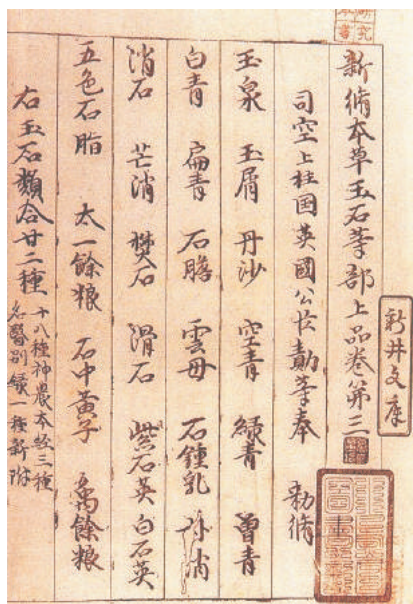 新脩本草玉石等部上品卷第三
司空上柱国英國公臣勣等奉 勑脩
玉泉 玉屑 丹沙 空青 綠青 曽青
白青 扁青 石膽 雲母 石鍾乳 朴消
消石 芒消 礬石 滑石 紫石英 白石英
五色石脂 太一餘粮 石中黄子 禹餘粮
右玉石類合廿二種 十八種神農本經三種
名醫別録一種新附
新井文庫